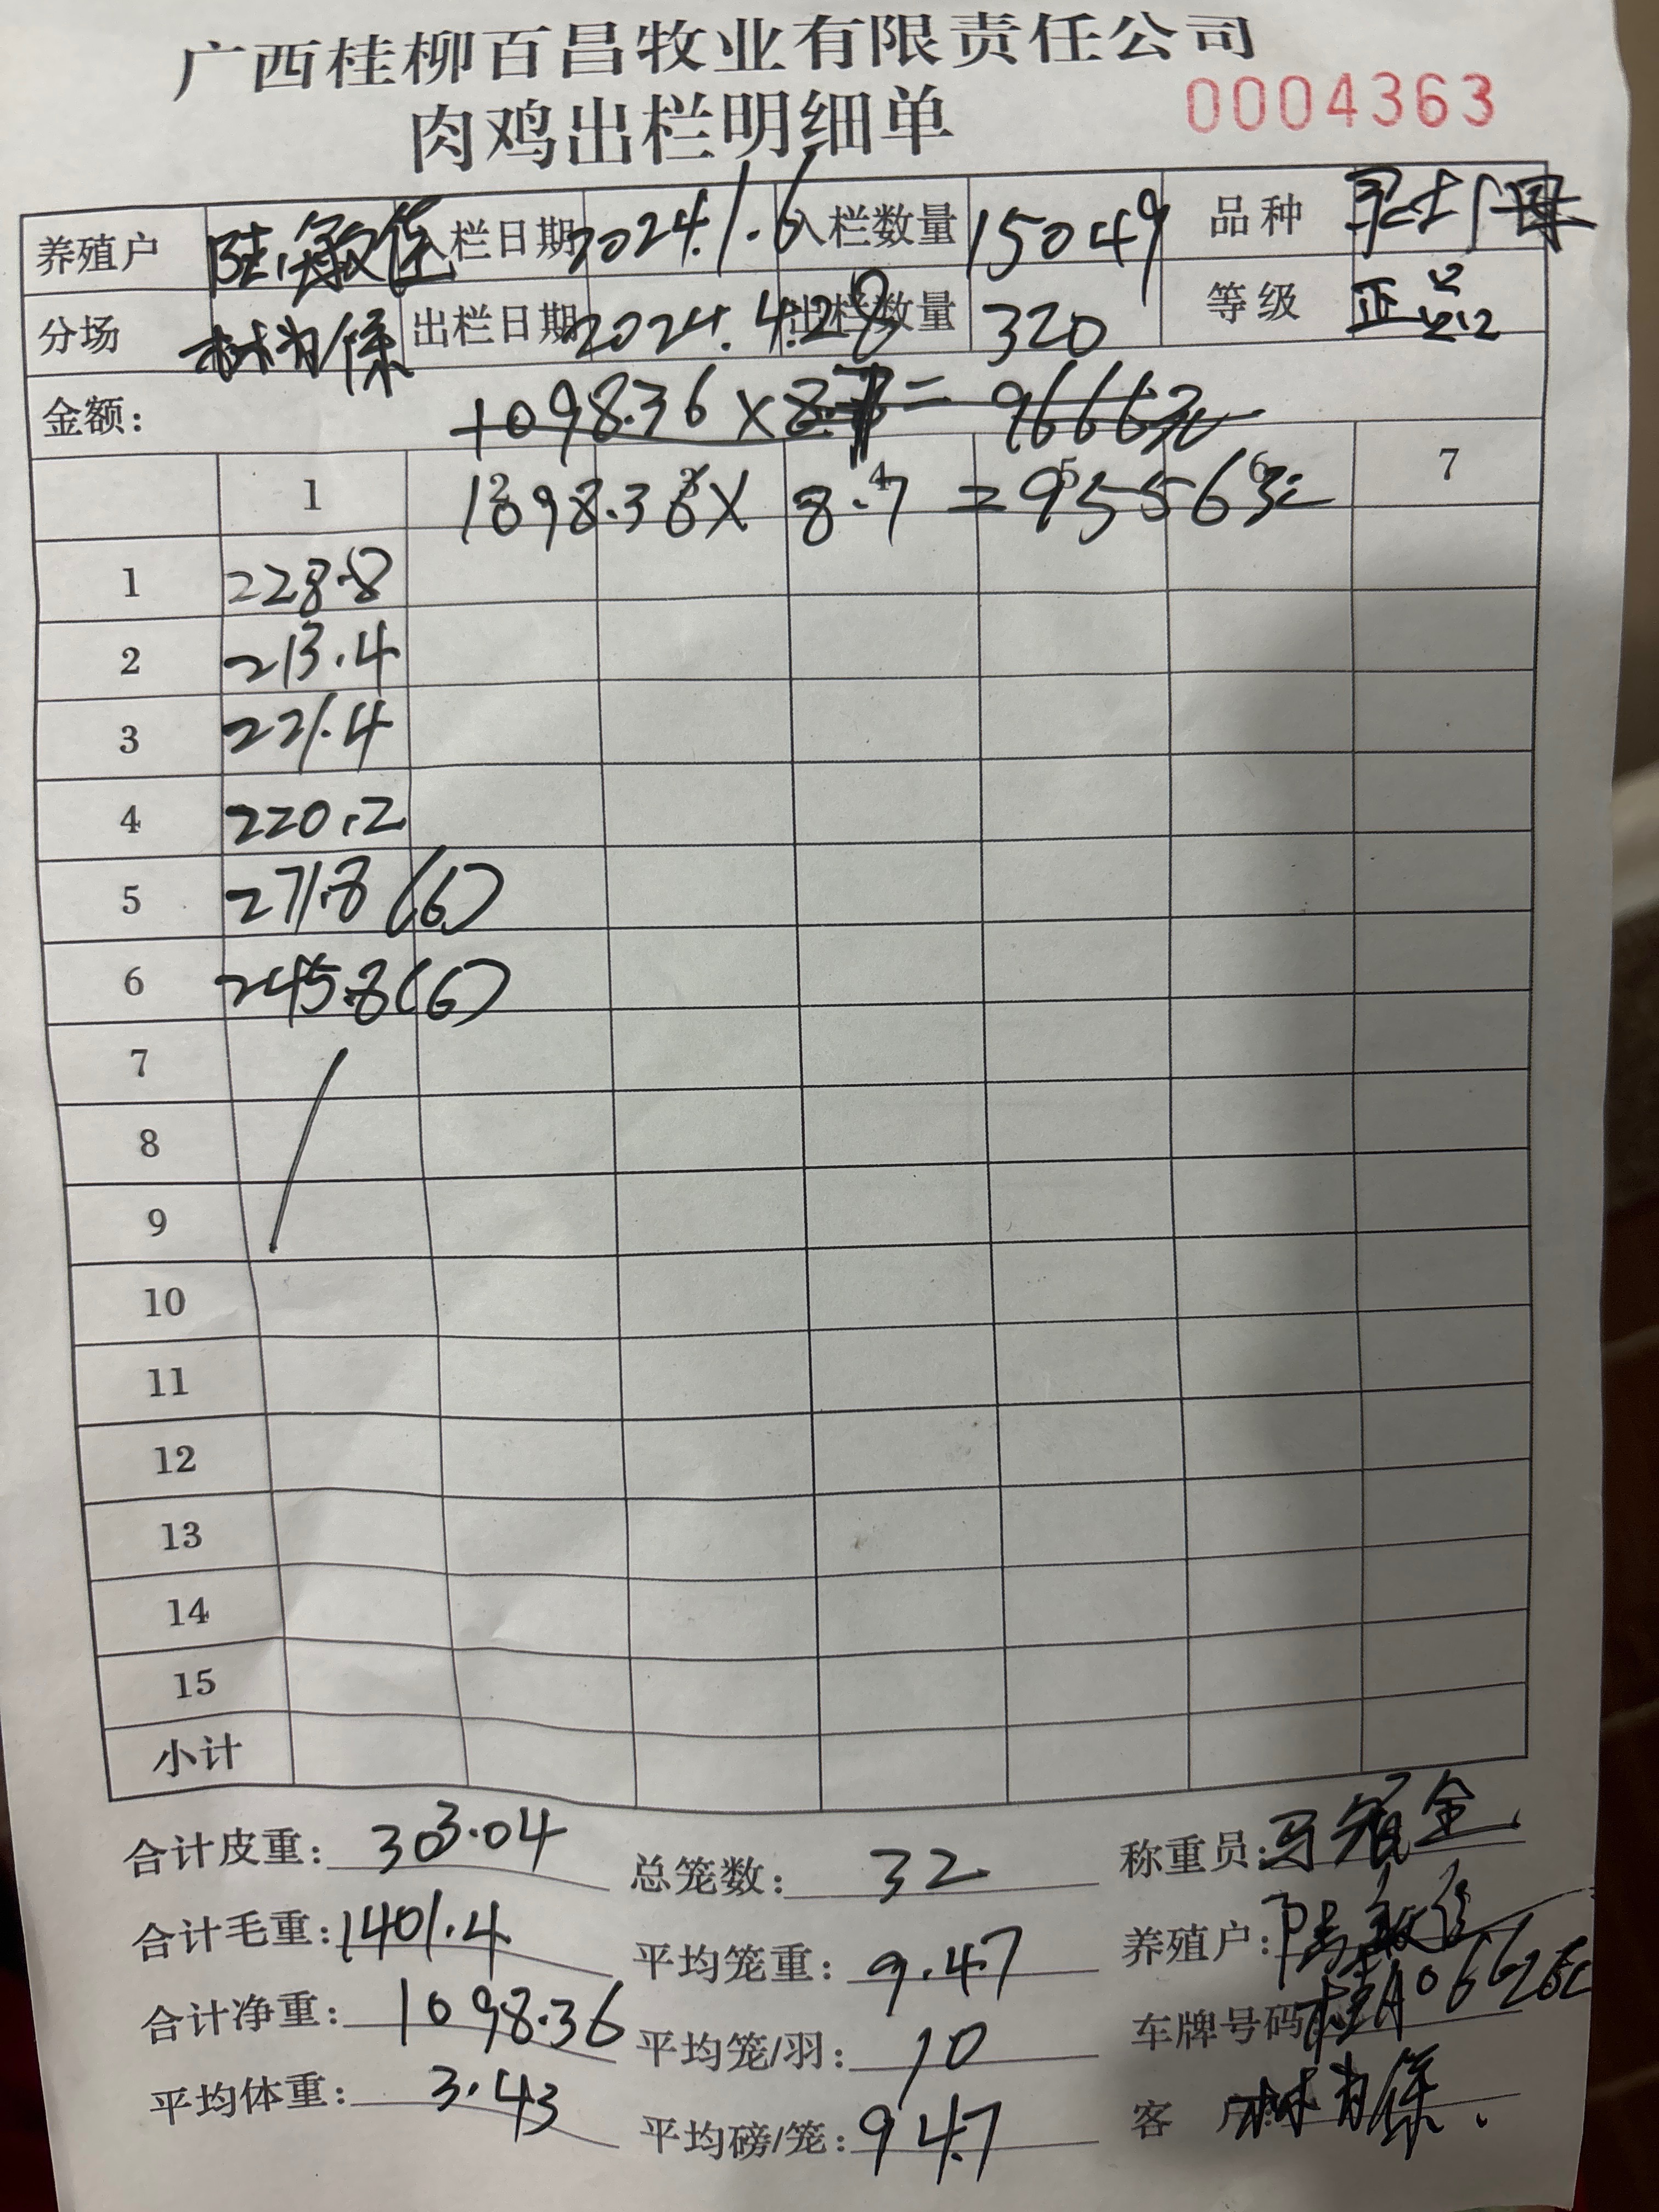 广西桂柳百昌牧业有限责任公司
肉鸡出栏明细单 0004363
养殖户 陆敏 入栏日期 2024.1.6 入栏数量 15049 品种
分场 出栏日期 2024.4.28 出栏数量 320 等级 正品
金额: 1098.36×8. = 9666元
1 2 3 4 5 6 7
1098.36× 8.7 =9556元
1 228.8
2 213.4
3 221.4
4 220.2
5 271.8 (6)
6 245.8 (6)
7
8
9
10
11
12
13
14
15
小计
合计皮重: 303.04 总笼数: 32 称重员: 金
合计毛重: 1401.4 平均笼重: 9.47 养殖户: 陆敏
合计净重: 1098.36 平均笼/羽: 10 车牌号码
平均体重: 3.43 平均磅/笼: 9.47 客户: